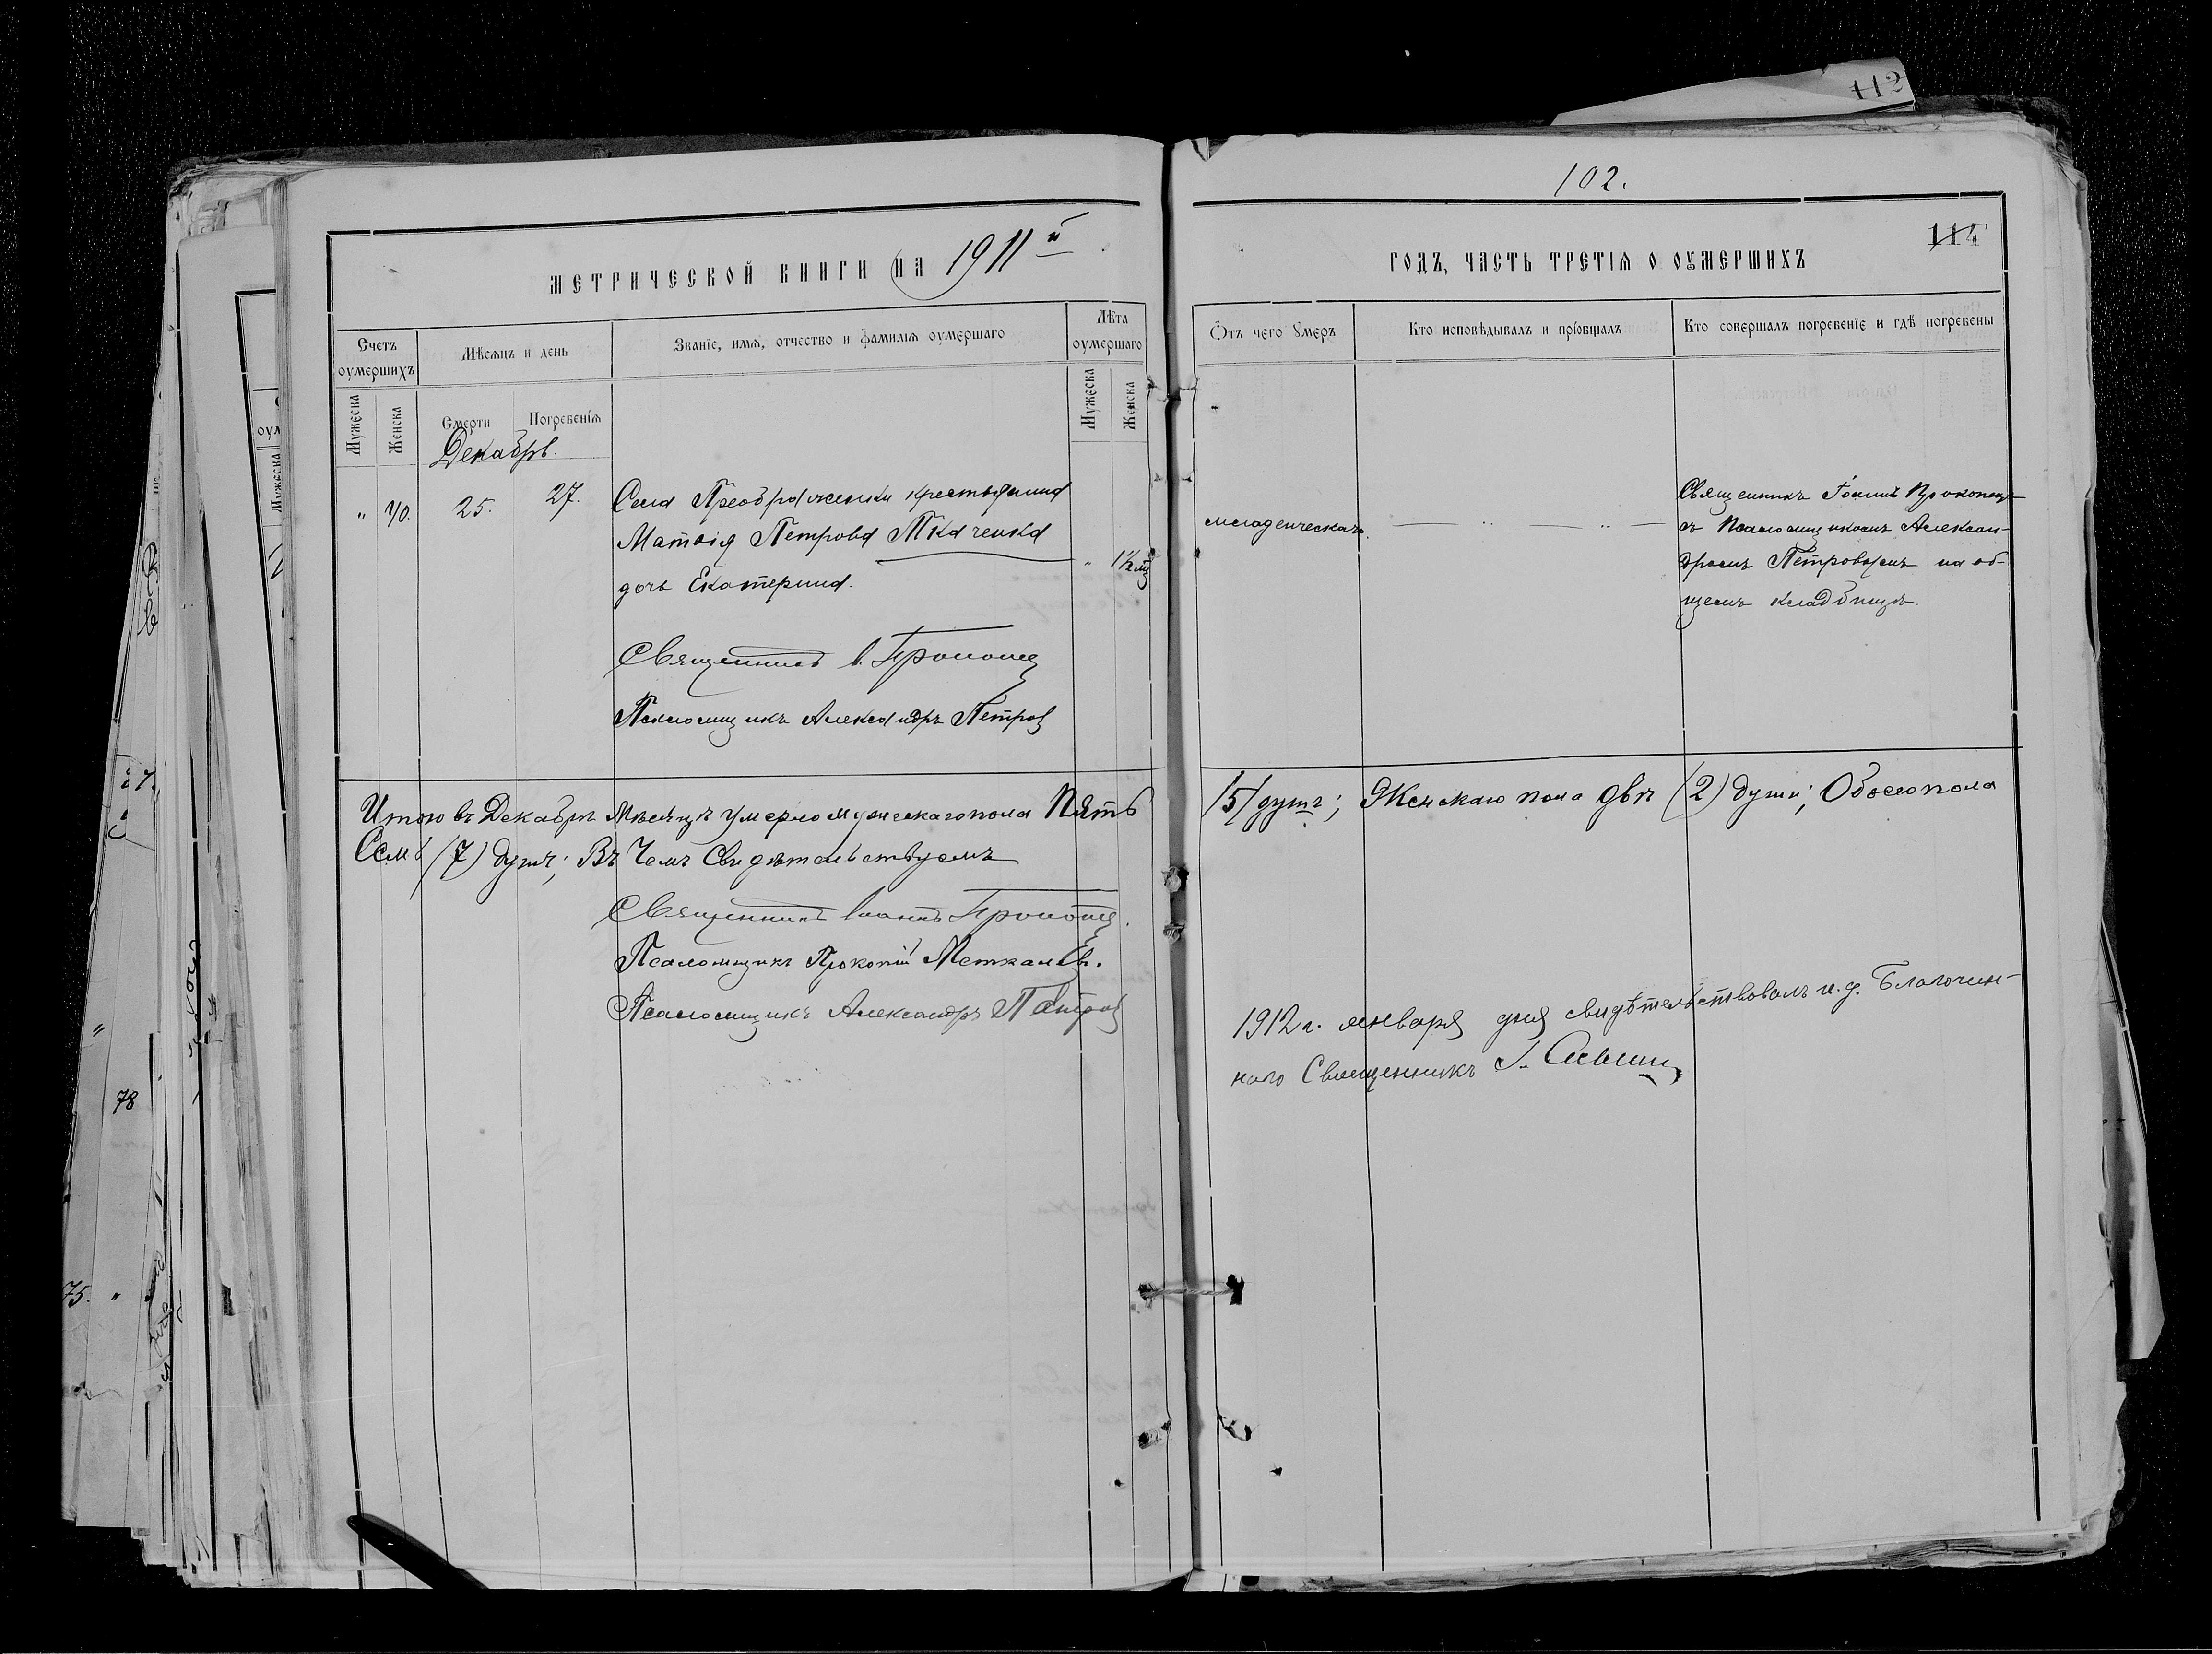 112
102.
114
МЕТРИЧЕСКОЙ КНИГИ НА 1911й
ГОДЪ, ЧАСТЬ ТРЕТІЯ О ОУМЕРШИХЪ
Счетъ оумершихъ
Мѣсяцъ и день
Званіе, имя, отчество и фамилія оумершаго
Лѣта оумершаго
Отъ чего умеръ
Кто исповѣдывалъ и пріобщалъ
Кто совершалъ погребеніе и гдѣ погребены
Мужеска
Женска
Смерти
Погребенія
Мужеска
Женска
Декабрь.
" 40. 25. 27.
Села Преображенки крестьянина
Матвія Петрова Ткаченка
дочь Екатерина.
" 1½ мц
младенческая.
Священникъ Іоаннъ Прокопец
съ Псаломщикомъ Алексан-
дромъ Петровымъ на об-
щемъ кладбищѣ.
Священникъ І. Прокопец
Псаломщикъ Александръ Петров
Итого въ Декабрѣ Мѣсяцѣ умерло мужескаго пола Пять /5/ душъ; Женскаго пола двѣ (2) души; Обоего пола
Семь (7) душъ; Въ Чемъ Свидѣтельствуемъ
Священникъ Іоаннъ Прокопец.
Псаломщикъ Прокопій
Псаломщикъ Александръ Петров
1912 г. января дня свидѣтельствовалъ и. д. Благочин-
наго Священникъ І.
27.
78
75. "